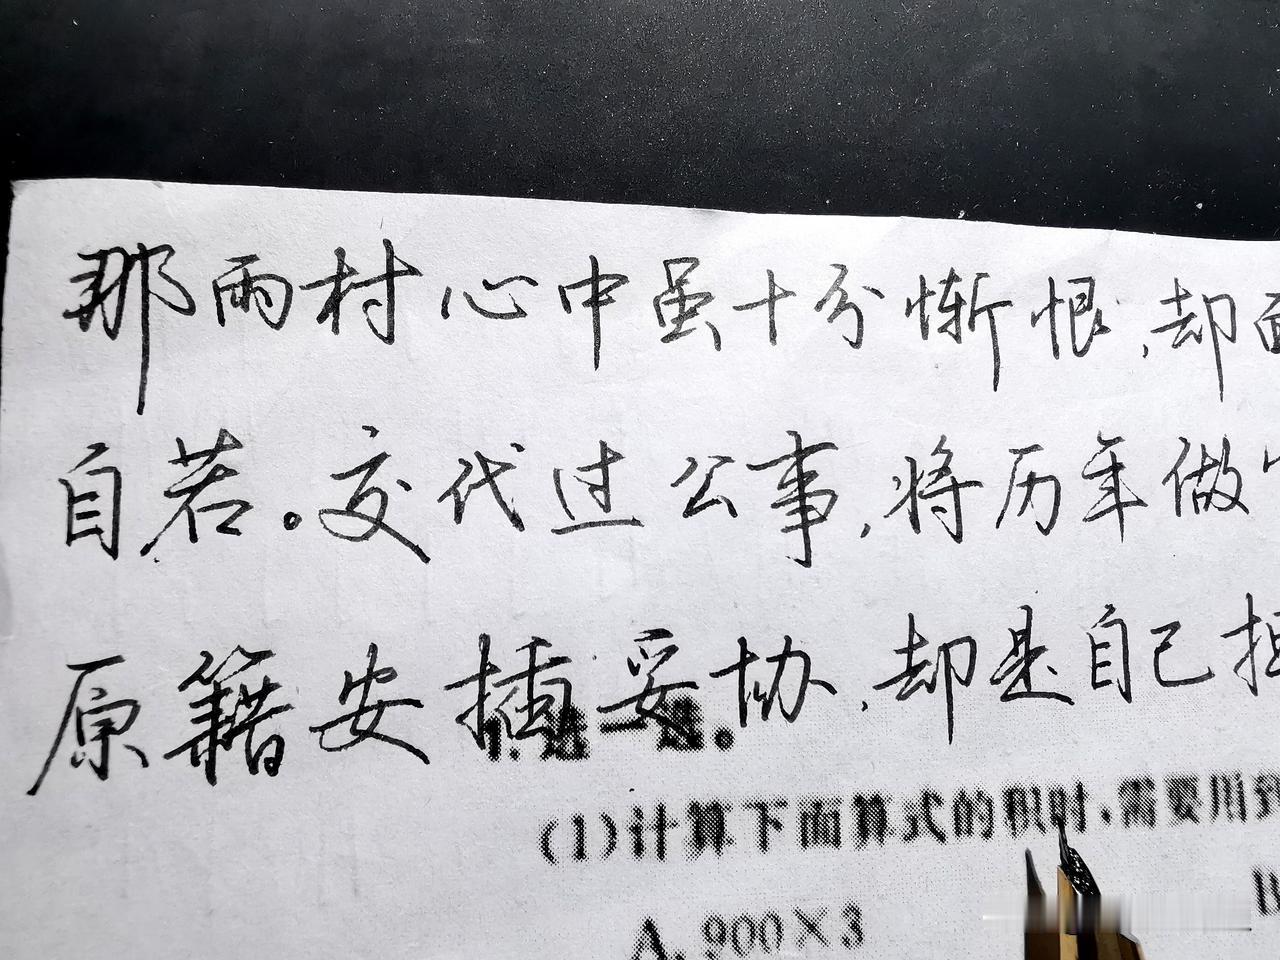 那雨村心中虽十分惭恨,却面
自若。交代过公事,将历年做
原籍安插妥协,却是自己担
1.选一选。
(1)计算下面算式的积时,需要用到
A.900×3